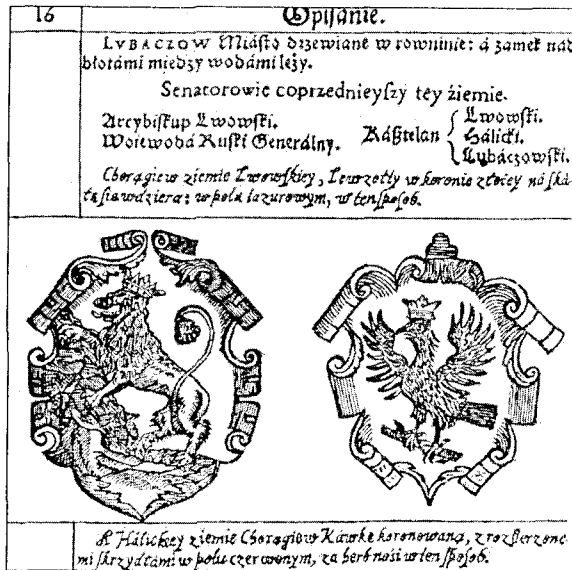 16
Opisanie.
LVBACZOW Miásto drzewiane w rowninie: á zamek nád
błotámi między wodámi leży.
Senatorowie coprzednieyszy tey źiemie.
Arcybiskup Lwowski.
Woiewodá Ruski Generálny.
Kásztelan
Lwowski.
Hálicki.
Lubáczowski.
Chorągiew ziemie Lwowskiey, Lew żółty w koronie złotey ná ská
łę sie wdziera: w polu lazurowym, w ten sposob.
A Hálickiey ziemie Chorągiew Káwkę koronowaną, z rozszerzone
mi skrzydłámi w polu czerwonym, za herb nosi w ten sposob.